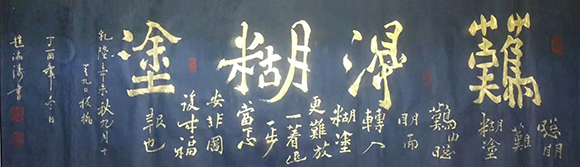 難得糊塗
聰明
難
糊塗
難由聰
明而
轉入
糊塗
更難放
一着退
一步
當下心
安非圖
後来福
報也
乾隆辛未秋九月十
有九日板橋
丁酉年冬日
趙海濤書